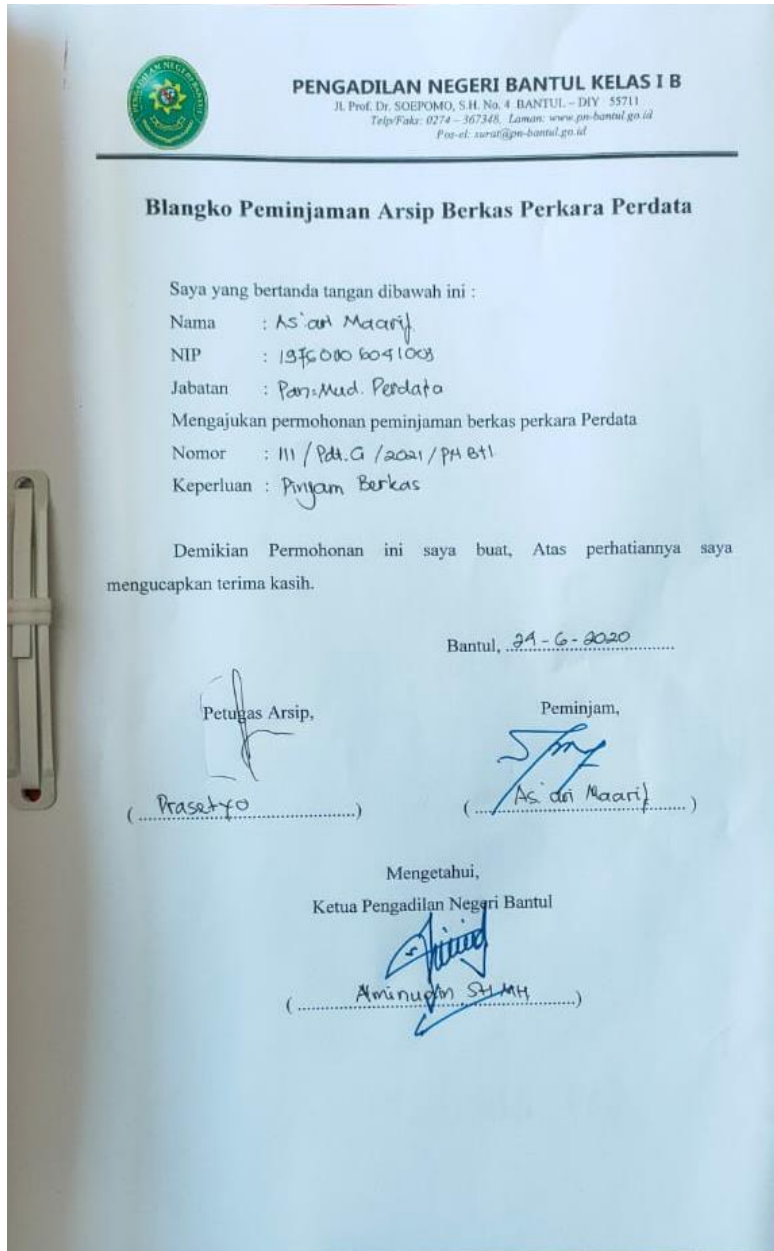 PENGADILAN NEGERI BANTUL KELAS I B
Jl. Prof. Dr. SOEPOMO, S.H. No. 4 BANTUL – DIY 55711
Telp/Faks: 0274 – 367348, Laman: www.pn-bantul.go.id
Pos-el: surat@pn-bantul.go.id
Blangko Peminjaman Arsip Berkas Perkara Perdata
Saya yang bertanda tangan dibawah ini :
Nama : As'ari Maarif
NIP :
Jabatan : Pan.Mud. Perdata
Mengajukan permohonan peminjaman berkas perkara Perdata
Nomor : 111 / Pdt.G / 2021 / PN Btl
Keperluan : Pinjam Berkas
Demikian Permohonan ini saya buat, Atas perhatiannya saya
mengucapkan terima kasih.
Bantul, 29 - 6 - 2020
Petugas Arsip, Peminjam,
( Prasetyo ) ( As'ari Maarif )
Mengetahui,
Ketua Pengadilan Negeri Bantul
( Aminuddin SH.MH. )